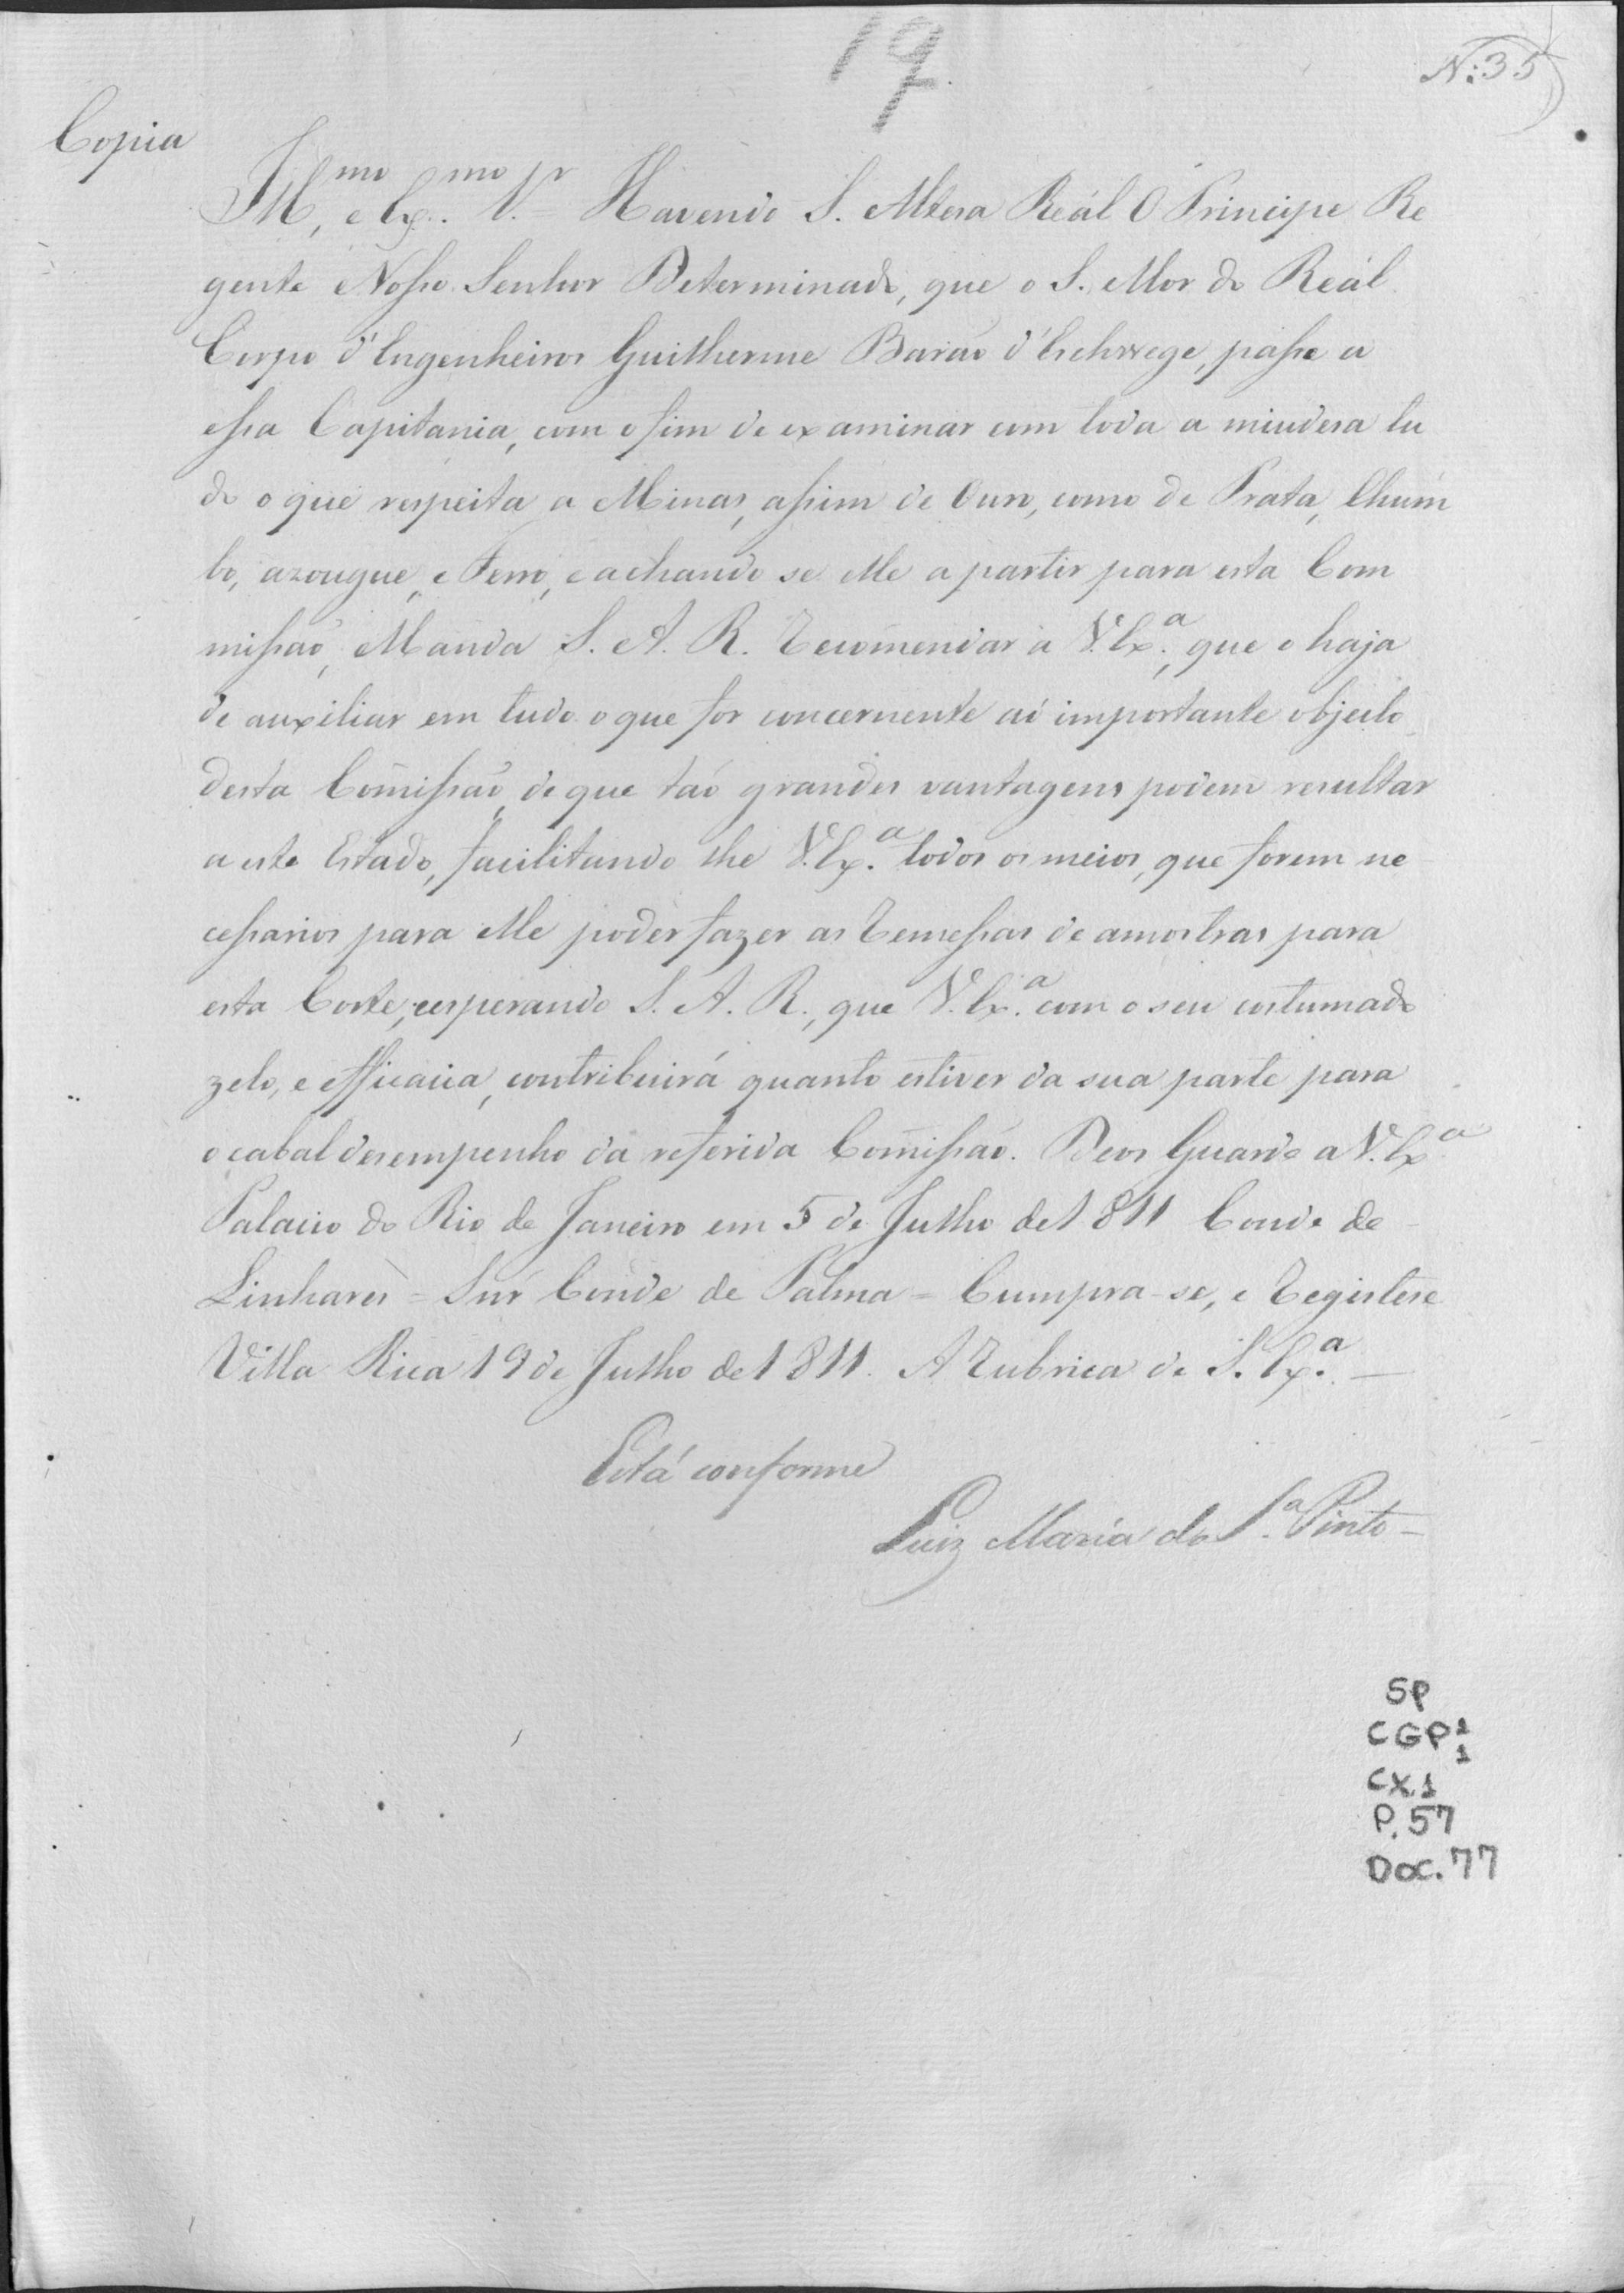 19.
N.º 35
Copia
Ill.mo, e Ex.mo Sr = Havendo S. Alteza Reál O Principe Re
gente Nosso Senhor Determinado, que o S. Mor do Reál
Corpo d'Engenheiros Guilherme Barão d'Eschwege, passe a
essa Capitania, com o fim de examinar com toda a miudesa tu
do o que respeita a Minas, assim de Ouro, como de Prata, Chum
bo, azougue, e Ferro, e achando se elle a partir para esta Com
missaõ, Manda S. A. R. Recõmendar a V. Ex.ª, que o haja
de auxiliar em tudo o que for concernente aó importante objecto
desta Cõmissaõ, de que taõ grandes vantagens podem resultar
a este Estado, facilitando lhe V. Ex.ª todos os meios, que forem ne
cessarios para elle poder fazer as Remessas de amostras para
esta Corte; esperando S. A. R., que V. Ex.ª com o seu costumado
zelo, e efficacia, contribuirá quanto estiver da sua parte para
o cabal desempenho da referida Cõmissaõ. Deos Guarde a V. Ex.ª
Palacio do Rio de Janeiro em 5 de Julho de 1811 Conde de
Linhares = Snr̃ Conde de Palma = Cumpra-se, e Registese
Villa Rica 19 de Julho de 1811. A Rubrica de S. Ex.ª —
Está conforme
Luiz Maria da S.ª Pinto —
SP
CGP 1
1
CX.1
P. 57
Doc. 77